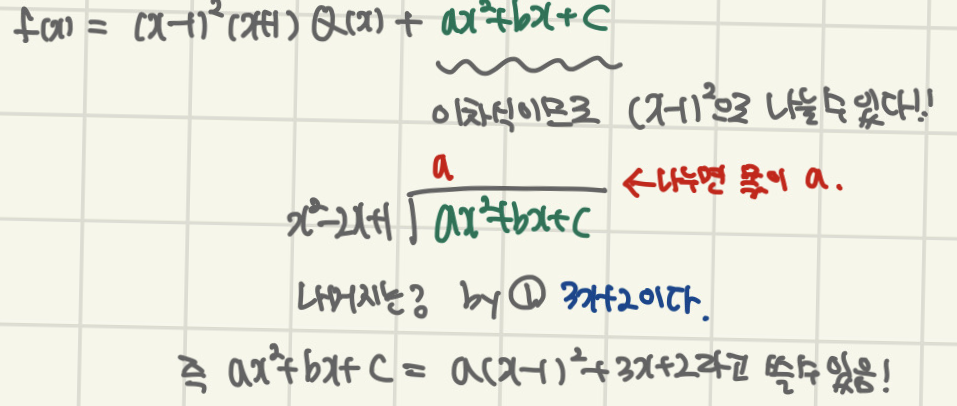 f(x) = (x-1)²(x+1) Q(x) + ax²+bx+c
이차식이므로 (x-1)²으로 나눌 수 있다!!
a ←나누면 몫이 a.
x²-2x+1 ) ax²+bx+c
나머지는? by ① 3x+2이다.
즉 ax²+bx+c = a(x-1)²+3x+2라고 쓸수있음!